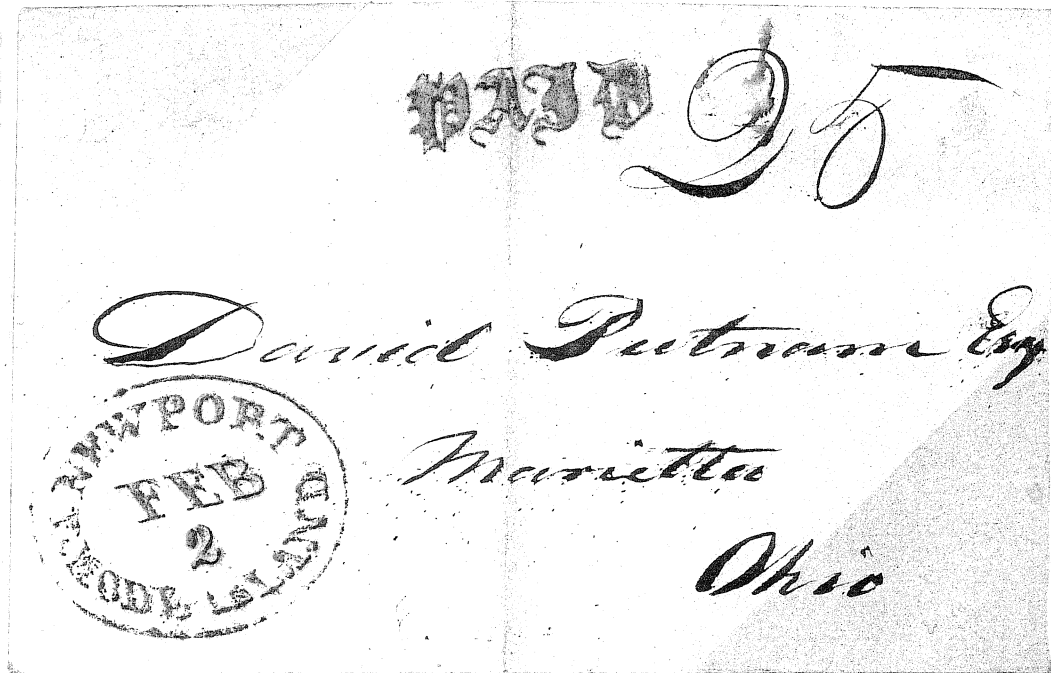 PAID 25
David Putnam Esq
Marietta
Ohio
NEWPORT
RHODE ISLAND
FEB
2